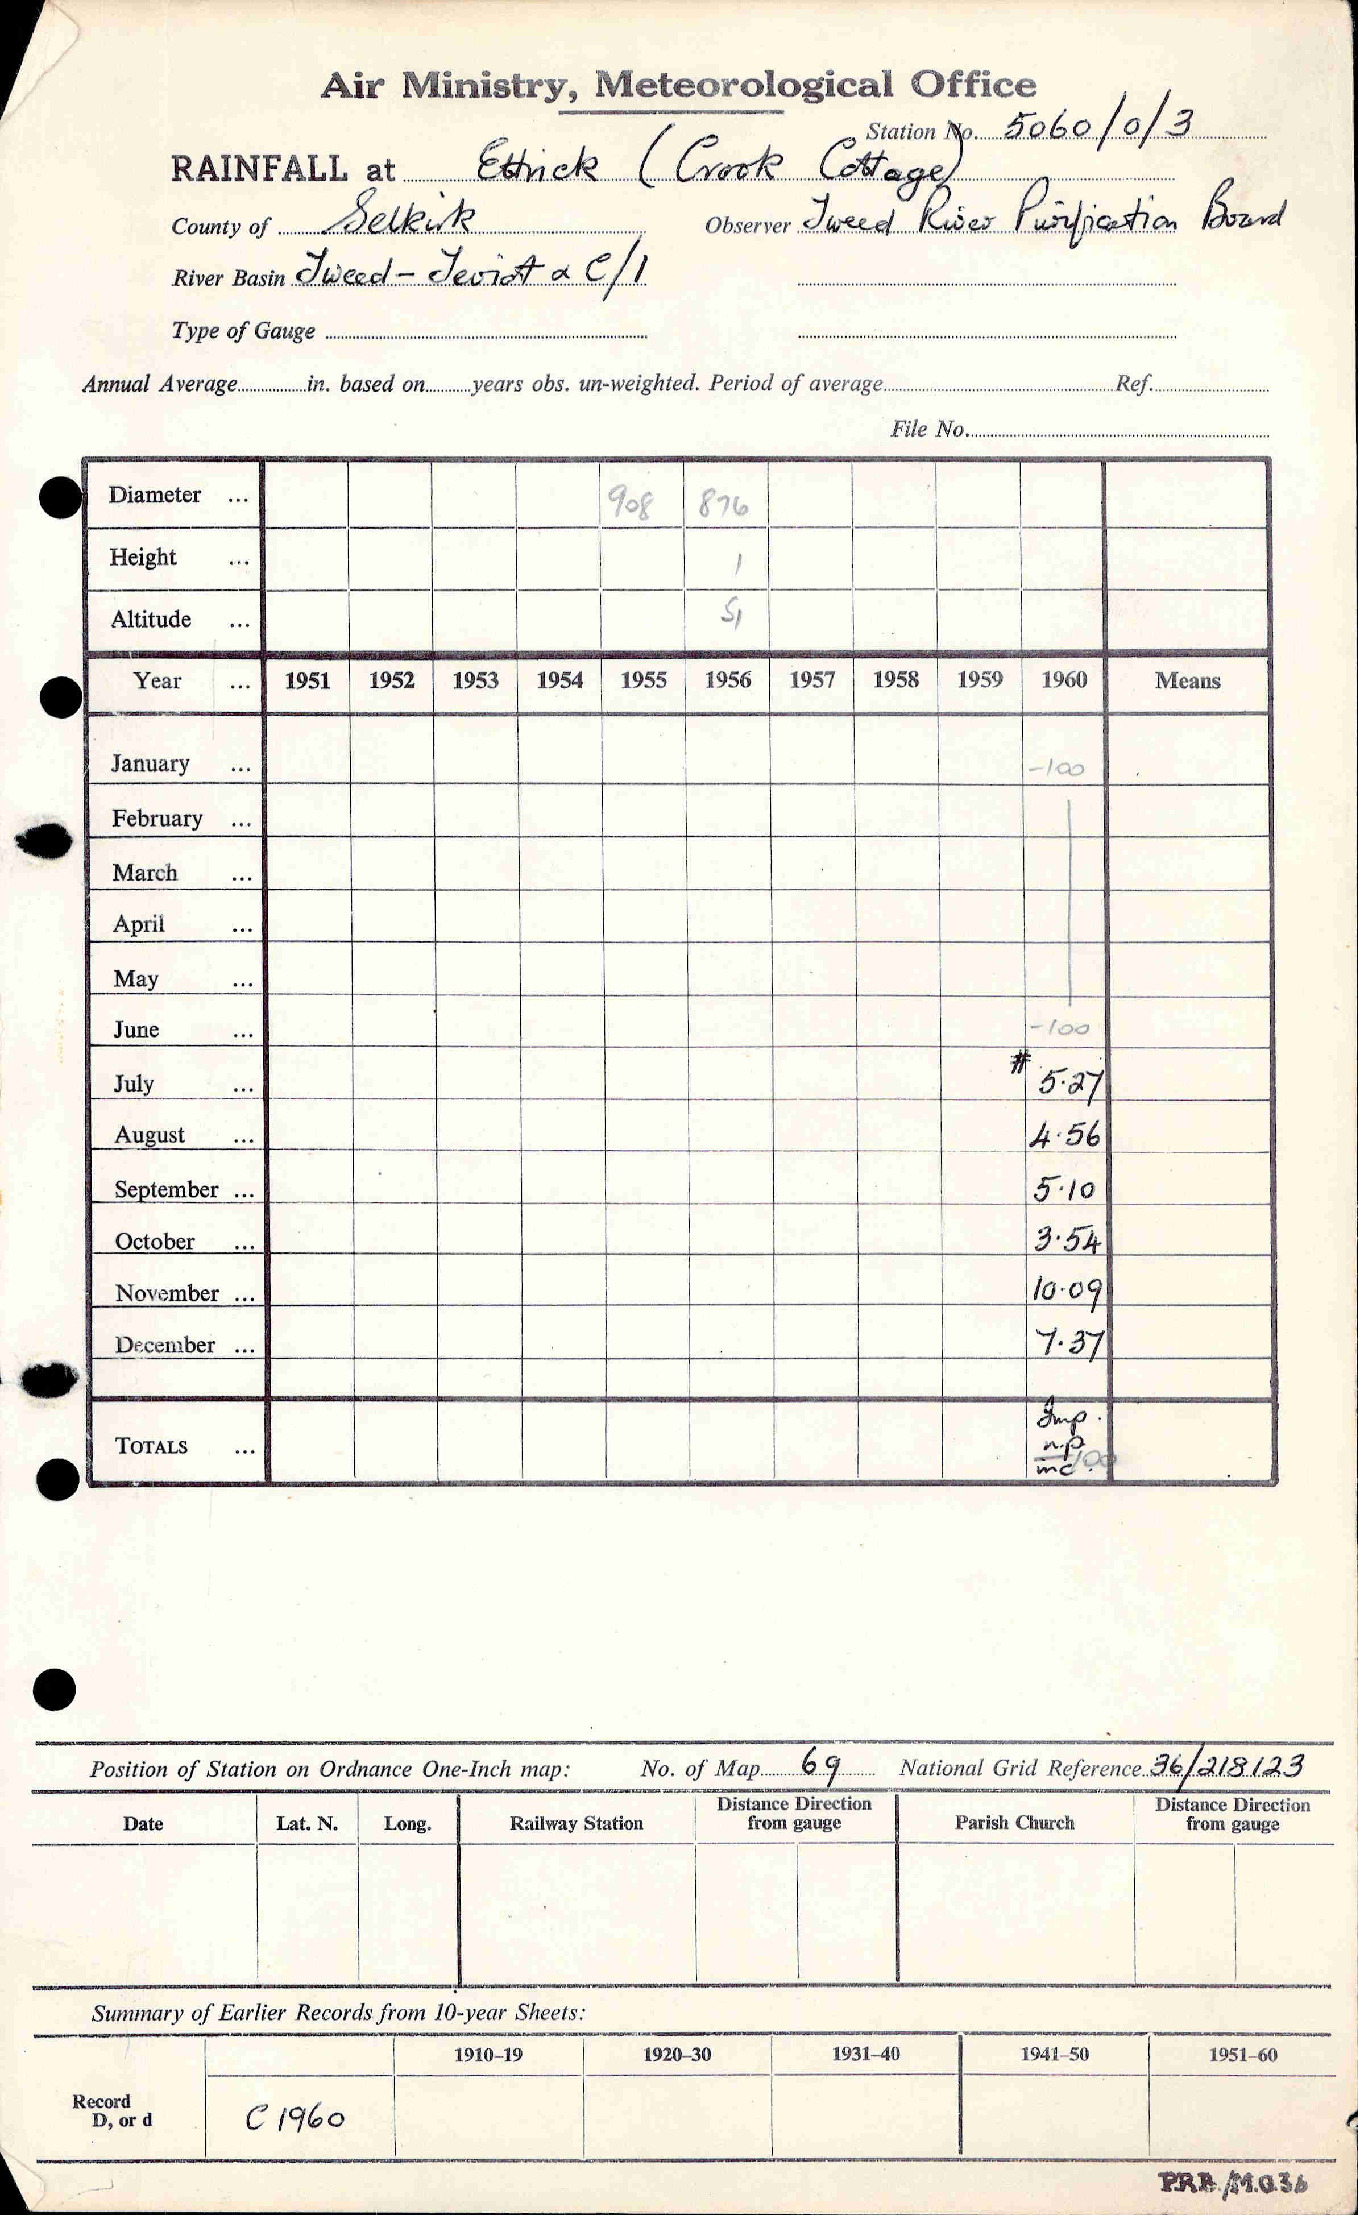 Air Ministry, Meteorological Office
Station No. 5060/0/3
RAINFALL at Ettrick (Crook Cottage)
County of Selkirk Observer Tweed River Purification Board
River Basin Tweed - Teviot & C/1
Type of Gauge
Annual Average in. based on years obs. un-weighted. Period of average Ref.
File No.
Diameter ... 908 876
Height ... 1
Altitude ...
Year ... 1951 1952 1953 1954 1955 1956 1957 1958 1959 1960 Means
January ... -100
February ...
March ...
April ...
May ...
June ... -100
July ... # 5.27
August ... 4.56
September ... 5.10
October ... 3.54
November ... 10.09
December ... 7.37
TOTALS ... Imp. n.p. mc. -100
Position of Station on Ordnance One-Inch map: No. of Map 69 National Grid Reference 36/218123
Date Lat. N. Long. Railway Station Distance Direction from gauge Parish Church Distance Direction from gauge
Summary of Earlier Records from 10-year Sheets:
1910-19 1920-30 1931-40 1941-50 1951-60
Record D, or d C 1960
PRB/M.O.36